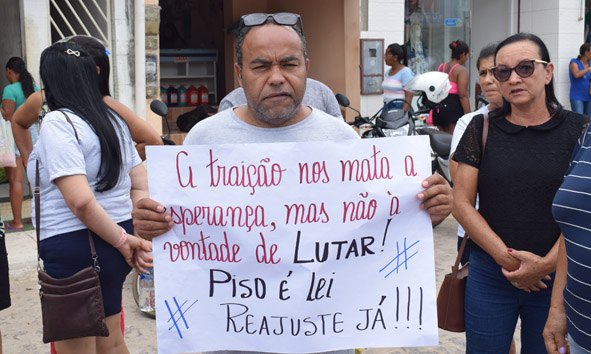 A traição nos mata a
esperança, mas não à
vontade de LUTAR!
PISO É LEI
# REAJUSTE JÁ!!! #